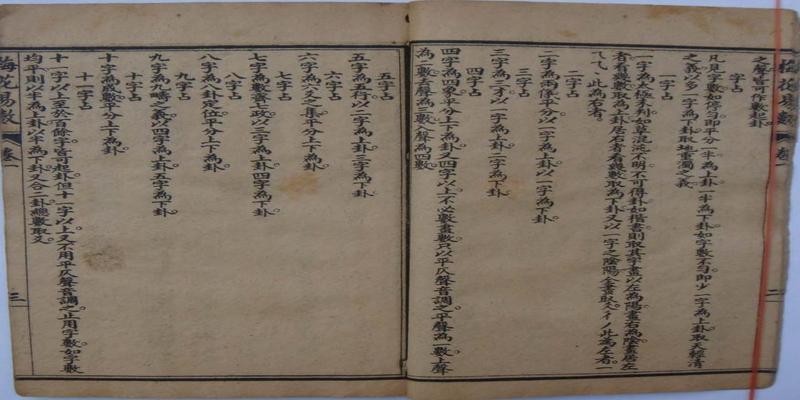 之聲皆可作數起卦
字占
凡見字數如停勻即平分一半為上卦一半為下卦如字數不勻即少一字為上卦取天輕清
之義以多一字為下卦取地重濁之義
一字占
一字為太極未判如草混沌不明不可得卦如楷書則取其字畫以左為陽畫右為陰畫居左
者看幾數取為上卦居右者看幾數取為下卦又以一字之陰陽全畫取爻彳丿此為左者一
乀乁丶此為右者
二字占
二字為兩儀平分以一字為上卦以一字為下卦
三字占
三字為三才以一字為上卦二字為下卦
四字占
四字為四象平分上下為卦又四字以上不必數畫數只以平仄聲音調之平聲為一數上聲
為二數去聲為三數入聲為四數
五字占
五字為五行以二字為上卦三字為下卦
六字占
六字為六爻之集平分上下為卦
七字占
七字為數齊七政以三字為上卦四字為下卦
八字占
八字為八卦定位平分上下為卦
九字占
九字為九疇之義以四字為上卦五字為下卦
十字占
十字為成數平分上下為卦
十一字占
十一字以上至於百餘字皆可起卦但十一字以上又不用平仄聲音調之止用字數如字數
均平則以半為上卦以半為下卦又合二卦總數取爻
梅花易數 卷一 三
梅花易數 卷一 二